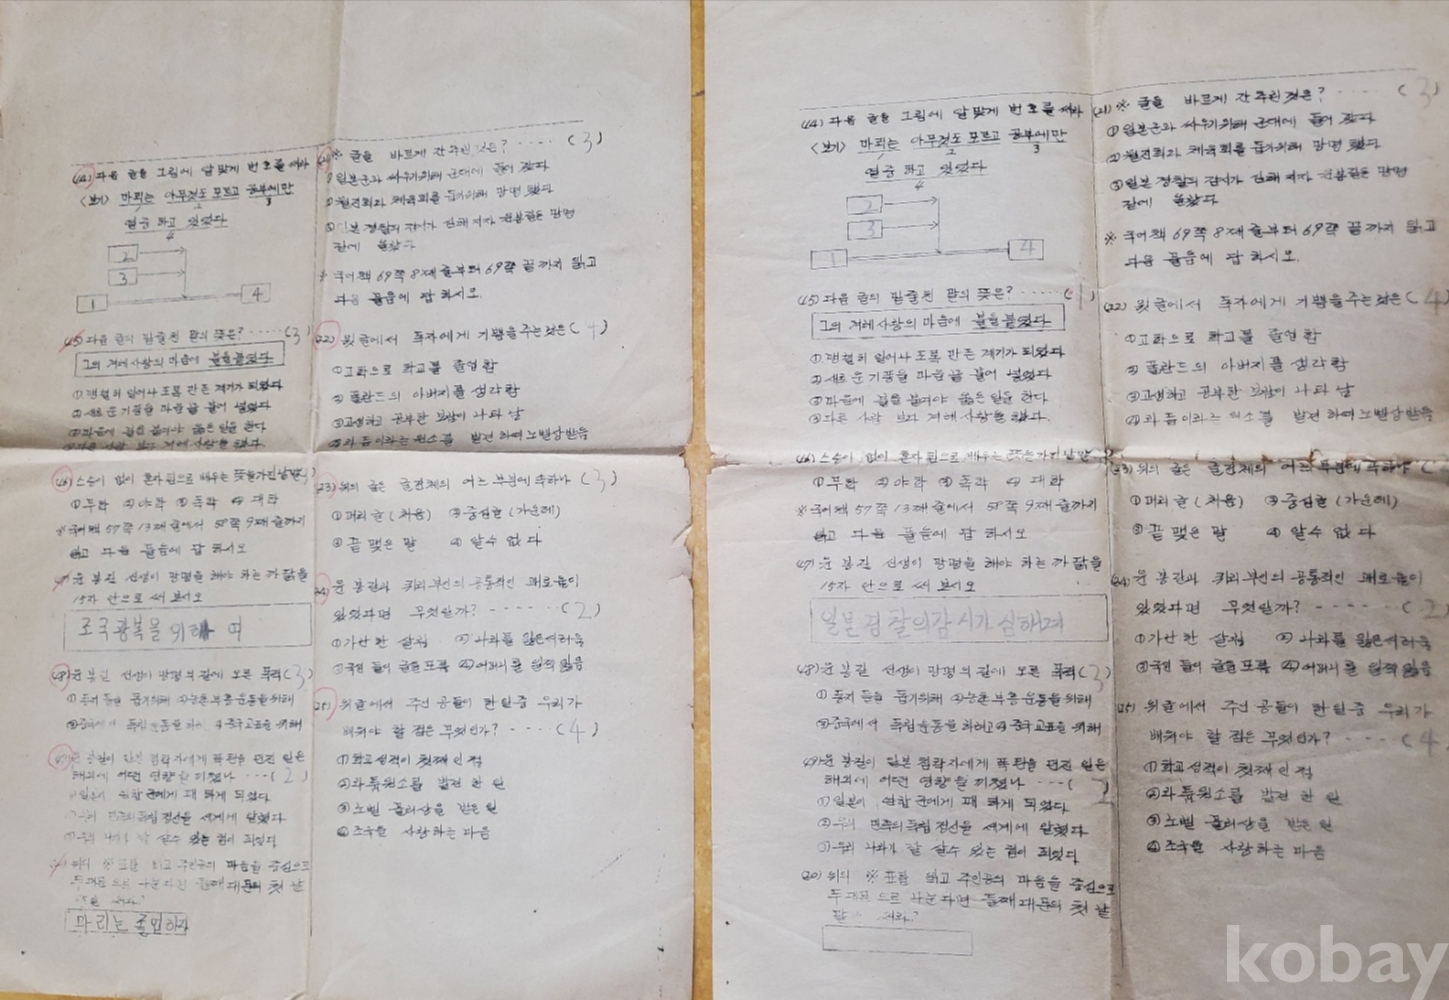 (14) 다음 글을 그림에 알맞게 번호를 써라
<보기> 마리는 아무것도 모르고 공부에만
1 2 3
열중 하고 있었다
4
2
3
1 4
(15) 다음 글의 밑줄친 말의 뜻은? ····· (3)
그의 겨레사랑의 마음에 불을붙였다
② 새로운 기풍을 마음에 불어 넣었다
(16) 스승이 없이 혼자 힘으로 배우는 뜻을가진 낱말
③ 독학
※ 국어책 57쪽 13째 줄에서 58쪽 9째 줄까지
읽고 다음 물음에 답 하시오
(17) 윤 봉길 선생이 망명을 해야 하는 까닭을
15자 안으로 써 보시오
조국광복을 위하여
(18) 윤 봉길 선생이 망명의 길에 오른 목적 (3)
① 동지 들을 돕기위해 ② 농촌 부흥 운동을 위해
(19) 윤 봉길이 일본 침략자에게 폭탄을 던진 일은
해외에 어떤 영향을 끼쳤나 ··· (2)
두 대문으로 나눈다면 둘째 대문의 첫 낱
마리는 졸업하자
※ 글을 바르게 간추린것은? ···· (3)
① 일본군과 싸우기위해 군대에 들어 갔다
② 월진회와 체육회를 돕기위해 망명 했다
③ 일본 경찰의 감시가 심해 지자 윤봉길은 망명
길에 올랐다
※ 국어책 69쪽 8째 줄부터 69쪽 끝까지 읽고
다음 물음에 답 하시오.
(22) 윗글에서 독자에게 기쁨을 주는것은 (4)
① 고학으로 학교를 졸업함
② 폴란드의 아버지를 생각함
③ 고생하고 공부한 보람이 나타 남
④ 라듐이라는 원소를 발견 하여 노벨상받음
(23) 위의 글은 글전체의 어느 부분에 속하나 (3)
① 머리글 (처음) ② 중심글 (가운데)
③ 끝 맺은 말 ④ 알수 없다
(24) 윤 봉길과 퀴리 부인의 공통적인 괴로움이
있었다면 무엇일까? ····· (2)
① 가난 한 살림 ② 나라를 잃은서러움
④ 어머니를 일찍 잃음
(25) 윗글에서 주인공들이 한 일중 우리가
배워야 할 점은 무엇인가? ··· (4)
① 학교성적이 첫째인 점
② 라듐원소를 발견 한 일
③ 노벨 물리상을 받은 일
④ 조국을 사랑하는 마음
(14) 다음 글을 그림에 알맞게 번호를 써라
<보기> 마리는 아무것도 모르고 공부에만
1 2 3
열중 하고 있었다
4
2
3
1 4
(15) 다음 글의 밑줄친 말의 뜻은? ····· (1)
그의 겨레사랑의 마음에 불을붙였다
① 맹렬히 일어나 도록 만든 계기가 되었다
② 새로운 기풍을 마음에 불어 넣었다
③ 마음에 불을 붙여야 옳은 일을 한다
④ 다른 사람 보다 겨레 사랑을 했다.
(16) 스승이 없이 혼자 힘으로 배우는 뜻을가진 낱말
③ 독학
※ 국어책 57쪽 13째 줄에서 58쪽 9째 줄까지
읽고 다음 물음에 답 하시오
(17) 윤 봉길 선생이 망명을 해야 하는 까닭을
15자 안으로 써 보시오
일본경찰의감시가심해져
(18) 윤 봉길 선생이 망명의 길에 오른 목적 (3)
① 동지 들을 돕기위해 ② 농촌 부흥 운동을 위해
③ 중국에서 독립운동을 하려고 ④ 중국교포를 위해
(19) 윤 봉길이 일본 침략자에게 폭탄을 던진 일은
해외에 어떤 영향을 끼쳤나 ···· (2
① 일본이 연합 군에게 패 하게 되었다
② 우리 민족의 독립 정신을 세계에 알렸다
③ 우리 나라가 잘 살수 있는 힘이 되었다
(20) 위의 ※ 표를 읽고 주인공의 마음을 중심으로
두 대문 으로 나눈다면 둘째 대문의 첫 낱
말 써라?
(21) ※ 글을 바르게 간추린것은? ···· (3)
① 일본군과 싸우기위해 군대에 들어 갔다
② 월진회와 체육회를 돕기위해 망명 했다
③ 일본 경찰의 감시가 심해 지자 윤봉길은 망명
길에 올랐다
※ 국어책 69쪽 8째 줄부터 69쪽 끝까지 읽고
다음 물음에 답 하시오.
(22) 윗글에서 독자에게 기쁨을 주는것은 (4
① 고학으로 학교를 졸업함
② 폴란드의 아버지를 생각함
③ 고생하고 공부한 보람이 나타 남
④ 라듐이라는 원소를 발견 하여 노벨상받음
(23) 위의 글은 글전체의 어느 부분에 속하나
① 머리글 (처음) ② 중심글 (가운데)
③ 끝 맺은 말 ④ 알수 없다
(24) 윤 봉길과 퀴리 부인의 공통적인 괴로움이
있었다면 무엇일까? ····· (2)
① 가난 한 살림 ② 나라를 잃은서러움
④ 어머니를 일찍 잃음
(25) 윗글에서 주인공들이 한 일중 우리가
배워야 할 점은 무엇인가? ··· (4
① 학교성적이 첫째인 점
② 라듐원소를 발견 한 일
③ 노벨 물리상을 받은 일
④ 조국을 사랑하는 마음
kobay